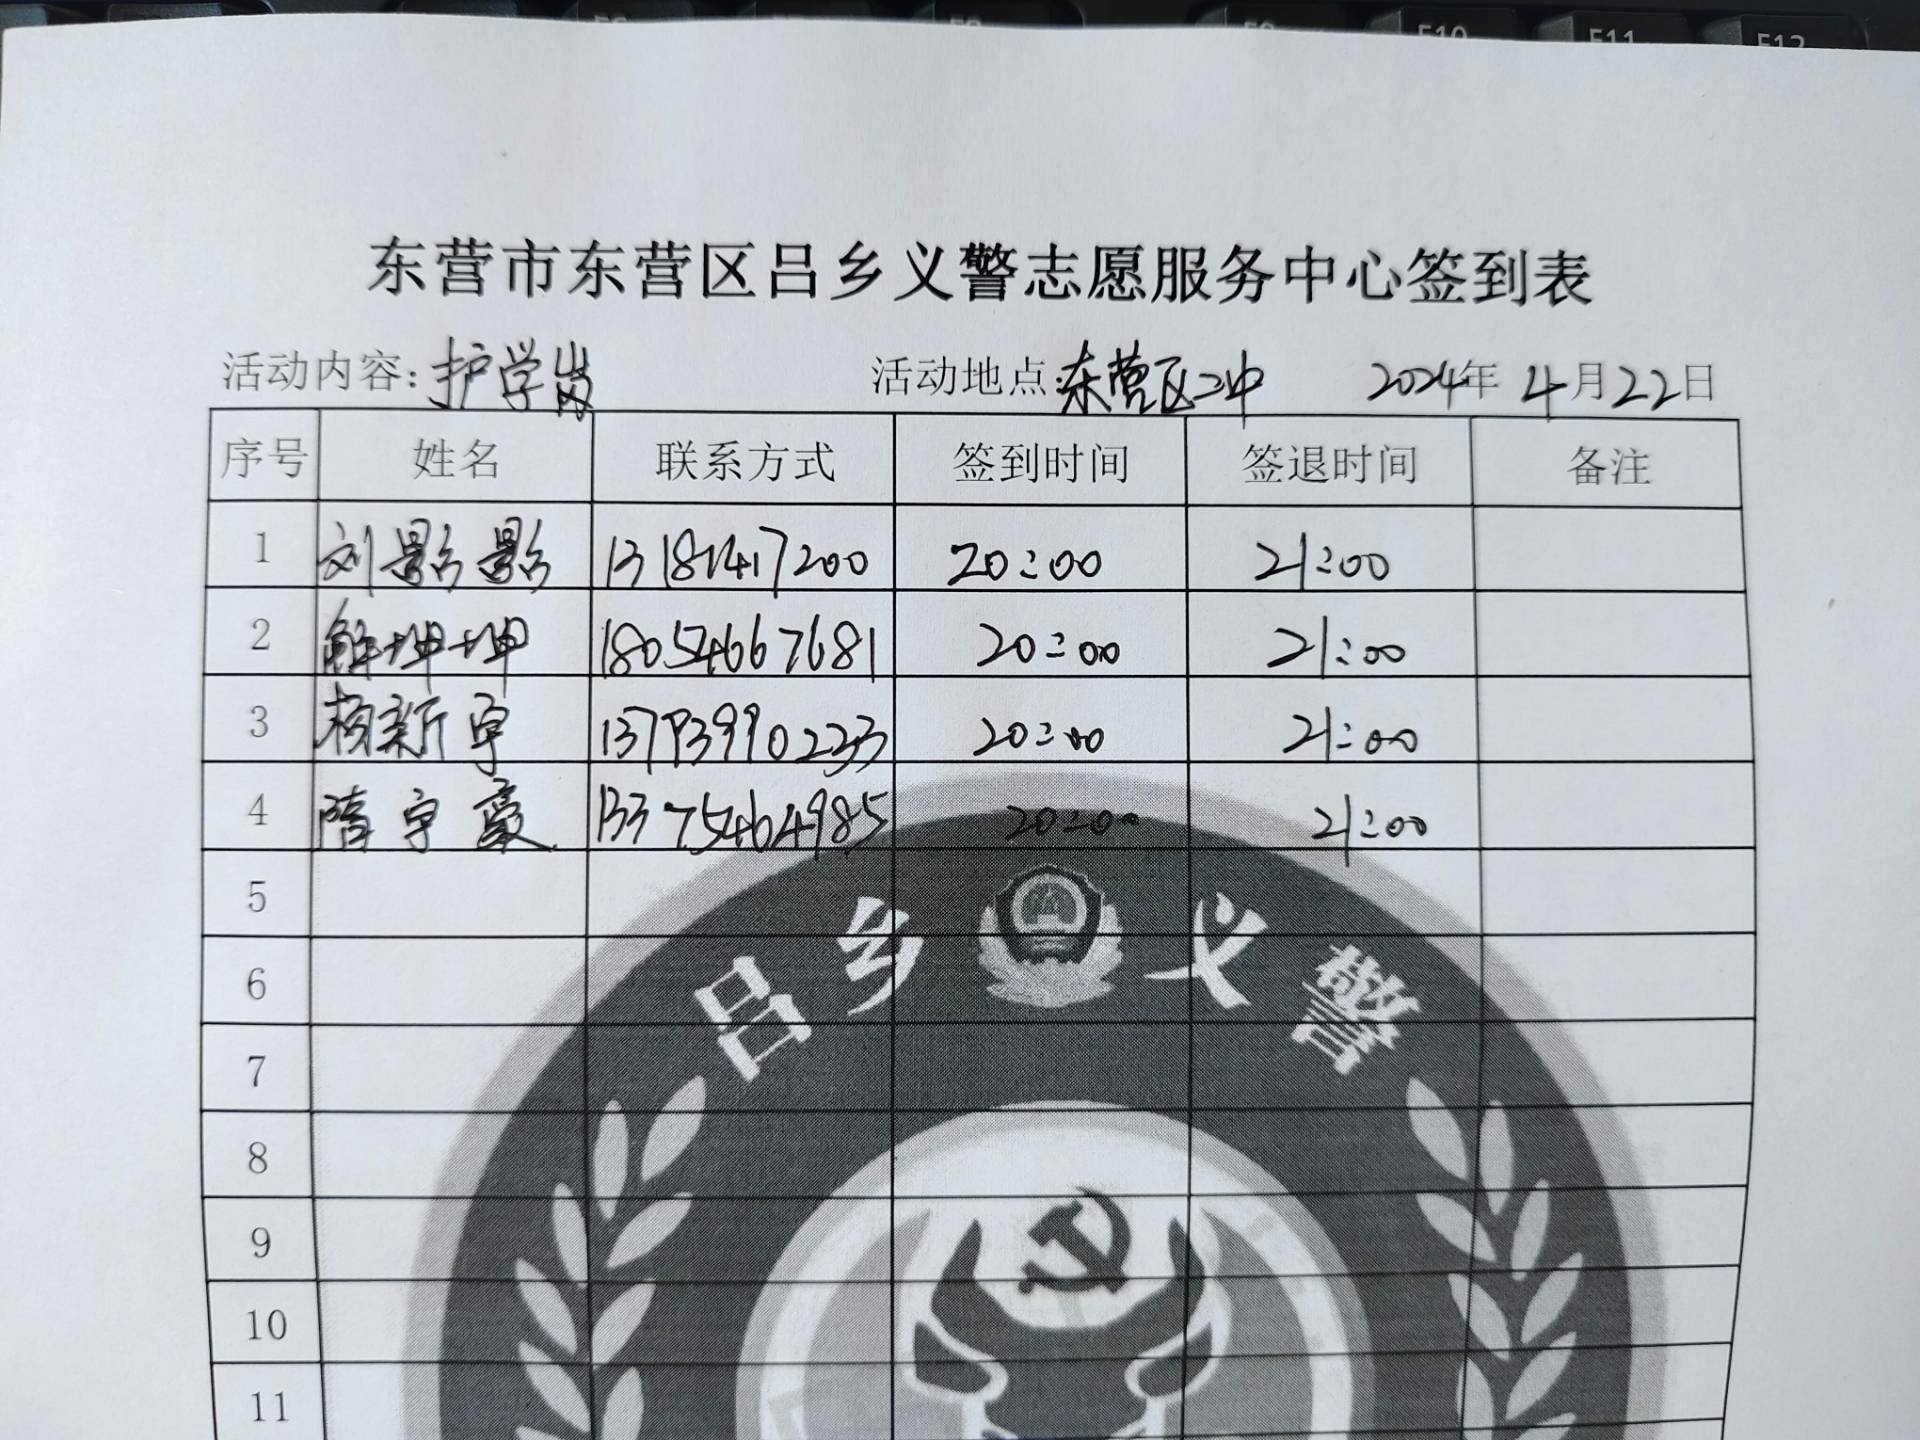 F9
F10
F11
F12
东营市东营区吕乡义警志愿服务中心签到表
活动内容：护学岗 活动地点：东营区二中 2024年 4月22日
序号 姓名 联系方式 签到时间 签退时间 备注
1 刘影影 20:00 21:00
2 解坤坤 18054667681 20:00 21:00
3 杨新宇 13793990233 20:00 21:00
4 隋宇豪 13375464985 20:00 21:00
5
6
7
8
9
10
11
吕乡义警